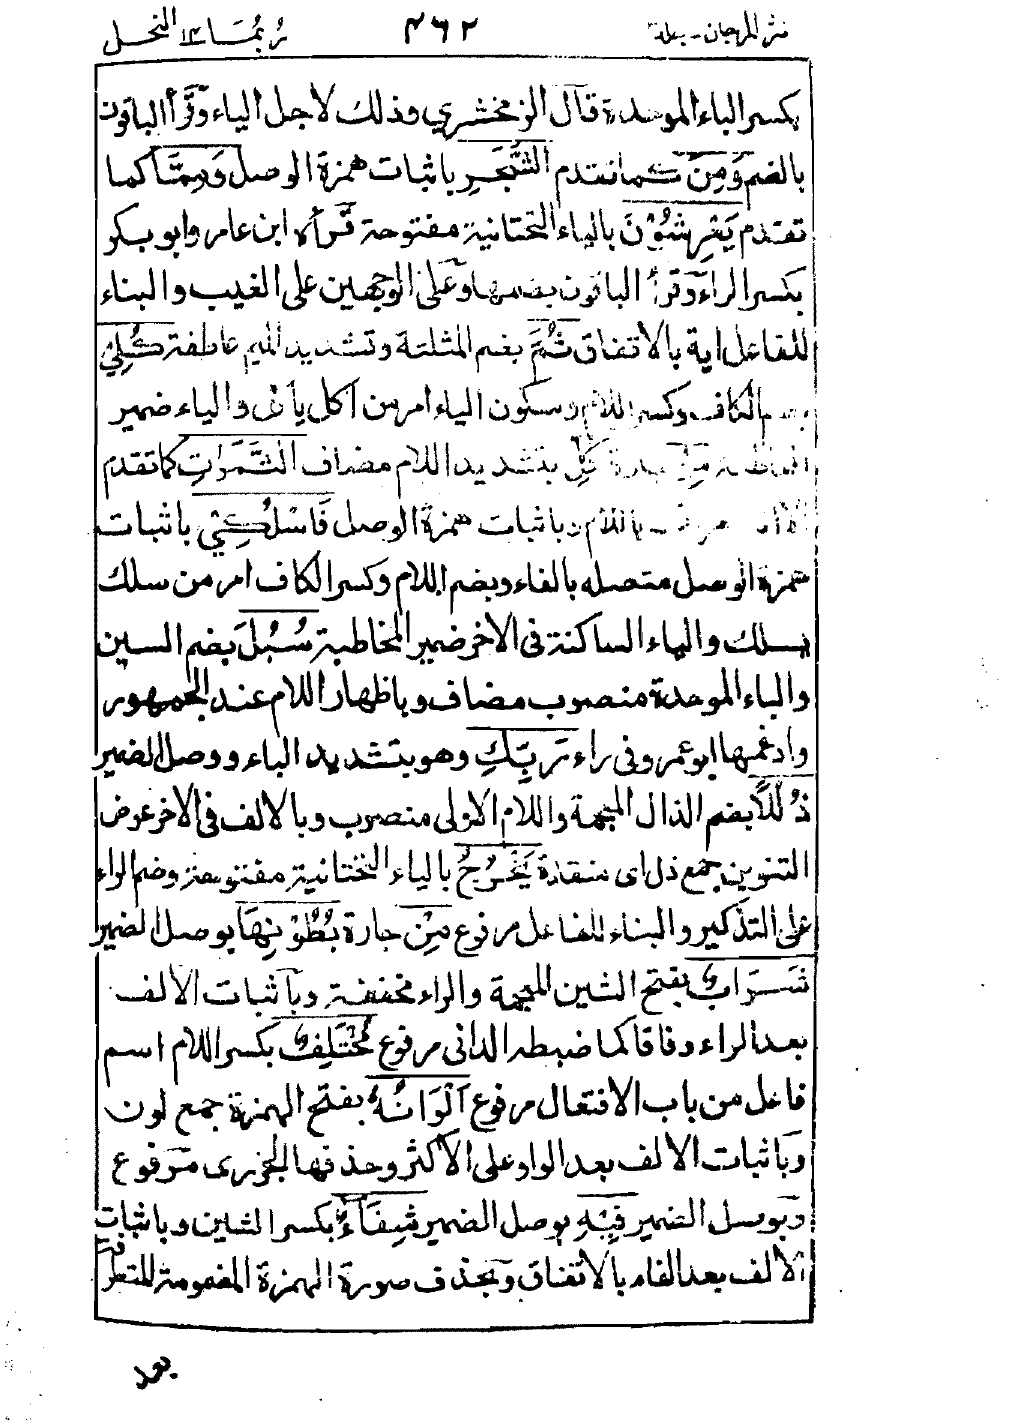 نثر المرجان - ٤٦٢ ربما ١٤ النحل
بكسر الباء الموحدة قال الزمخشري وذلك لاجل الياء وقرأ الباقون
بالضم وَمِنَ كما تقدم الشَّجَرِ باثبات همزة الوصل وَمِمَّا كما
تقدم يَعْرِشُوْنَ بالياء التحتانية مفتوحة قرأه ابن عامر وابو بكر
بكسر الراء وقرأ الباقون بضمها وعلى الوجهين على الغيب والبناء
للفاعل اية بالاتفاق ثُمَّ بضم المثلثة وتشديد الميم عاطفة كُلِيْ
الكاف وكسر اللام وسكون الياء امر من اكل يأكل والياء ضمير
كُلِّ بتشديد اللام مضاف الثَّمَرٰتِ كما تقدم
باللام وباثبات همزة الوصل فَاسْلُكِيْ باثبات
همزة الوصل متصله بالفاء وبضم اللام وكسر الكاف امر من سلك
يسلك والياء الساكنة فى الاخر ضمير المخاطبة سُبُلَ بضم السين
والباء الموحدة منصوب مضاف وباظهار اللام عند الجمهور
وادغمها ابو عمرو فى راء رَبِّكِ وهو بتشديد الباء ووصل الضمير
ذُلُلًا بضم الذال المعجمة واللام الاولى منصوب وبالالف فى الاخر عوض
التنوين جمع ذل اى منقادة يَخْرُجُ بالياء التحتانية مفتوحة وضم الراء
على التذكير والبناء للفاعل مرفوع مِنْ جارة بُطُوْنِهَا بوصل الضمير
شَرَابٌ بفتح الشين المعجمة والراء مخففة وباثبات الالف
بعد الراء وفاقا كما ضبطه الدانى مرفوع مُّخْتَلِفٌ بكسر اللام اسم
فاعل من باب الافتعال مرفوع اَلْوَانُهٗ بفتح الهمزة جمع لون
وباثبات الالف بعد الواو على الاكثر وحذفها الجزرى مرفوع
وبوصل الضمير فِيْهِ بوصل الضمير شِفَآءٌ بكسر الشين وباثبات
الالف بعد الفاء بالاتفاق وبحذف صورة الهمزة المضمومة للتطرف
بعد